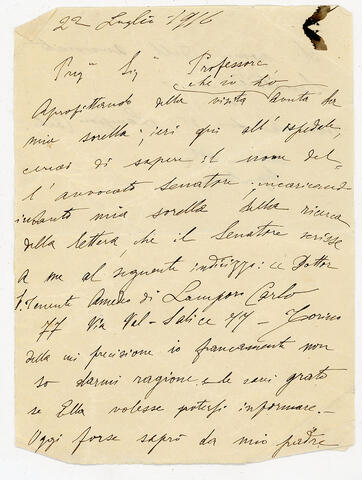 22 Luglio 1916
Preg° Sig° Professore
che io ho
Aprofittando della visita avuta da
mia sorella, ieri qui all'ospedale,
cercai di sapere il nome del-
l'avvocato Senatore incaricand
intanto mia sorella della ricerca
della lettera, che il Senatore scrisse
a me al seguente indirizzo:
Tenente Amedeo di Lamporo Carlo
77 Via Val-Salice 77 - Torino
della precisione io francamente non
so darmi ragione, e le sarei grato
se Ella volesse potersi informare. -
Oggi forse saprò da mio padre